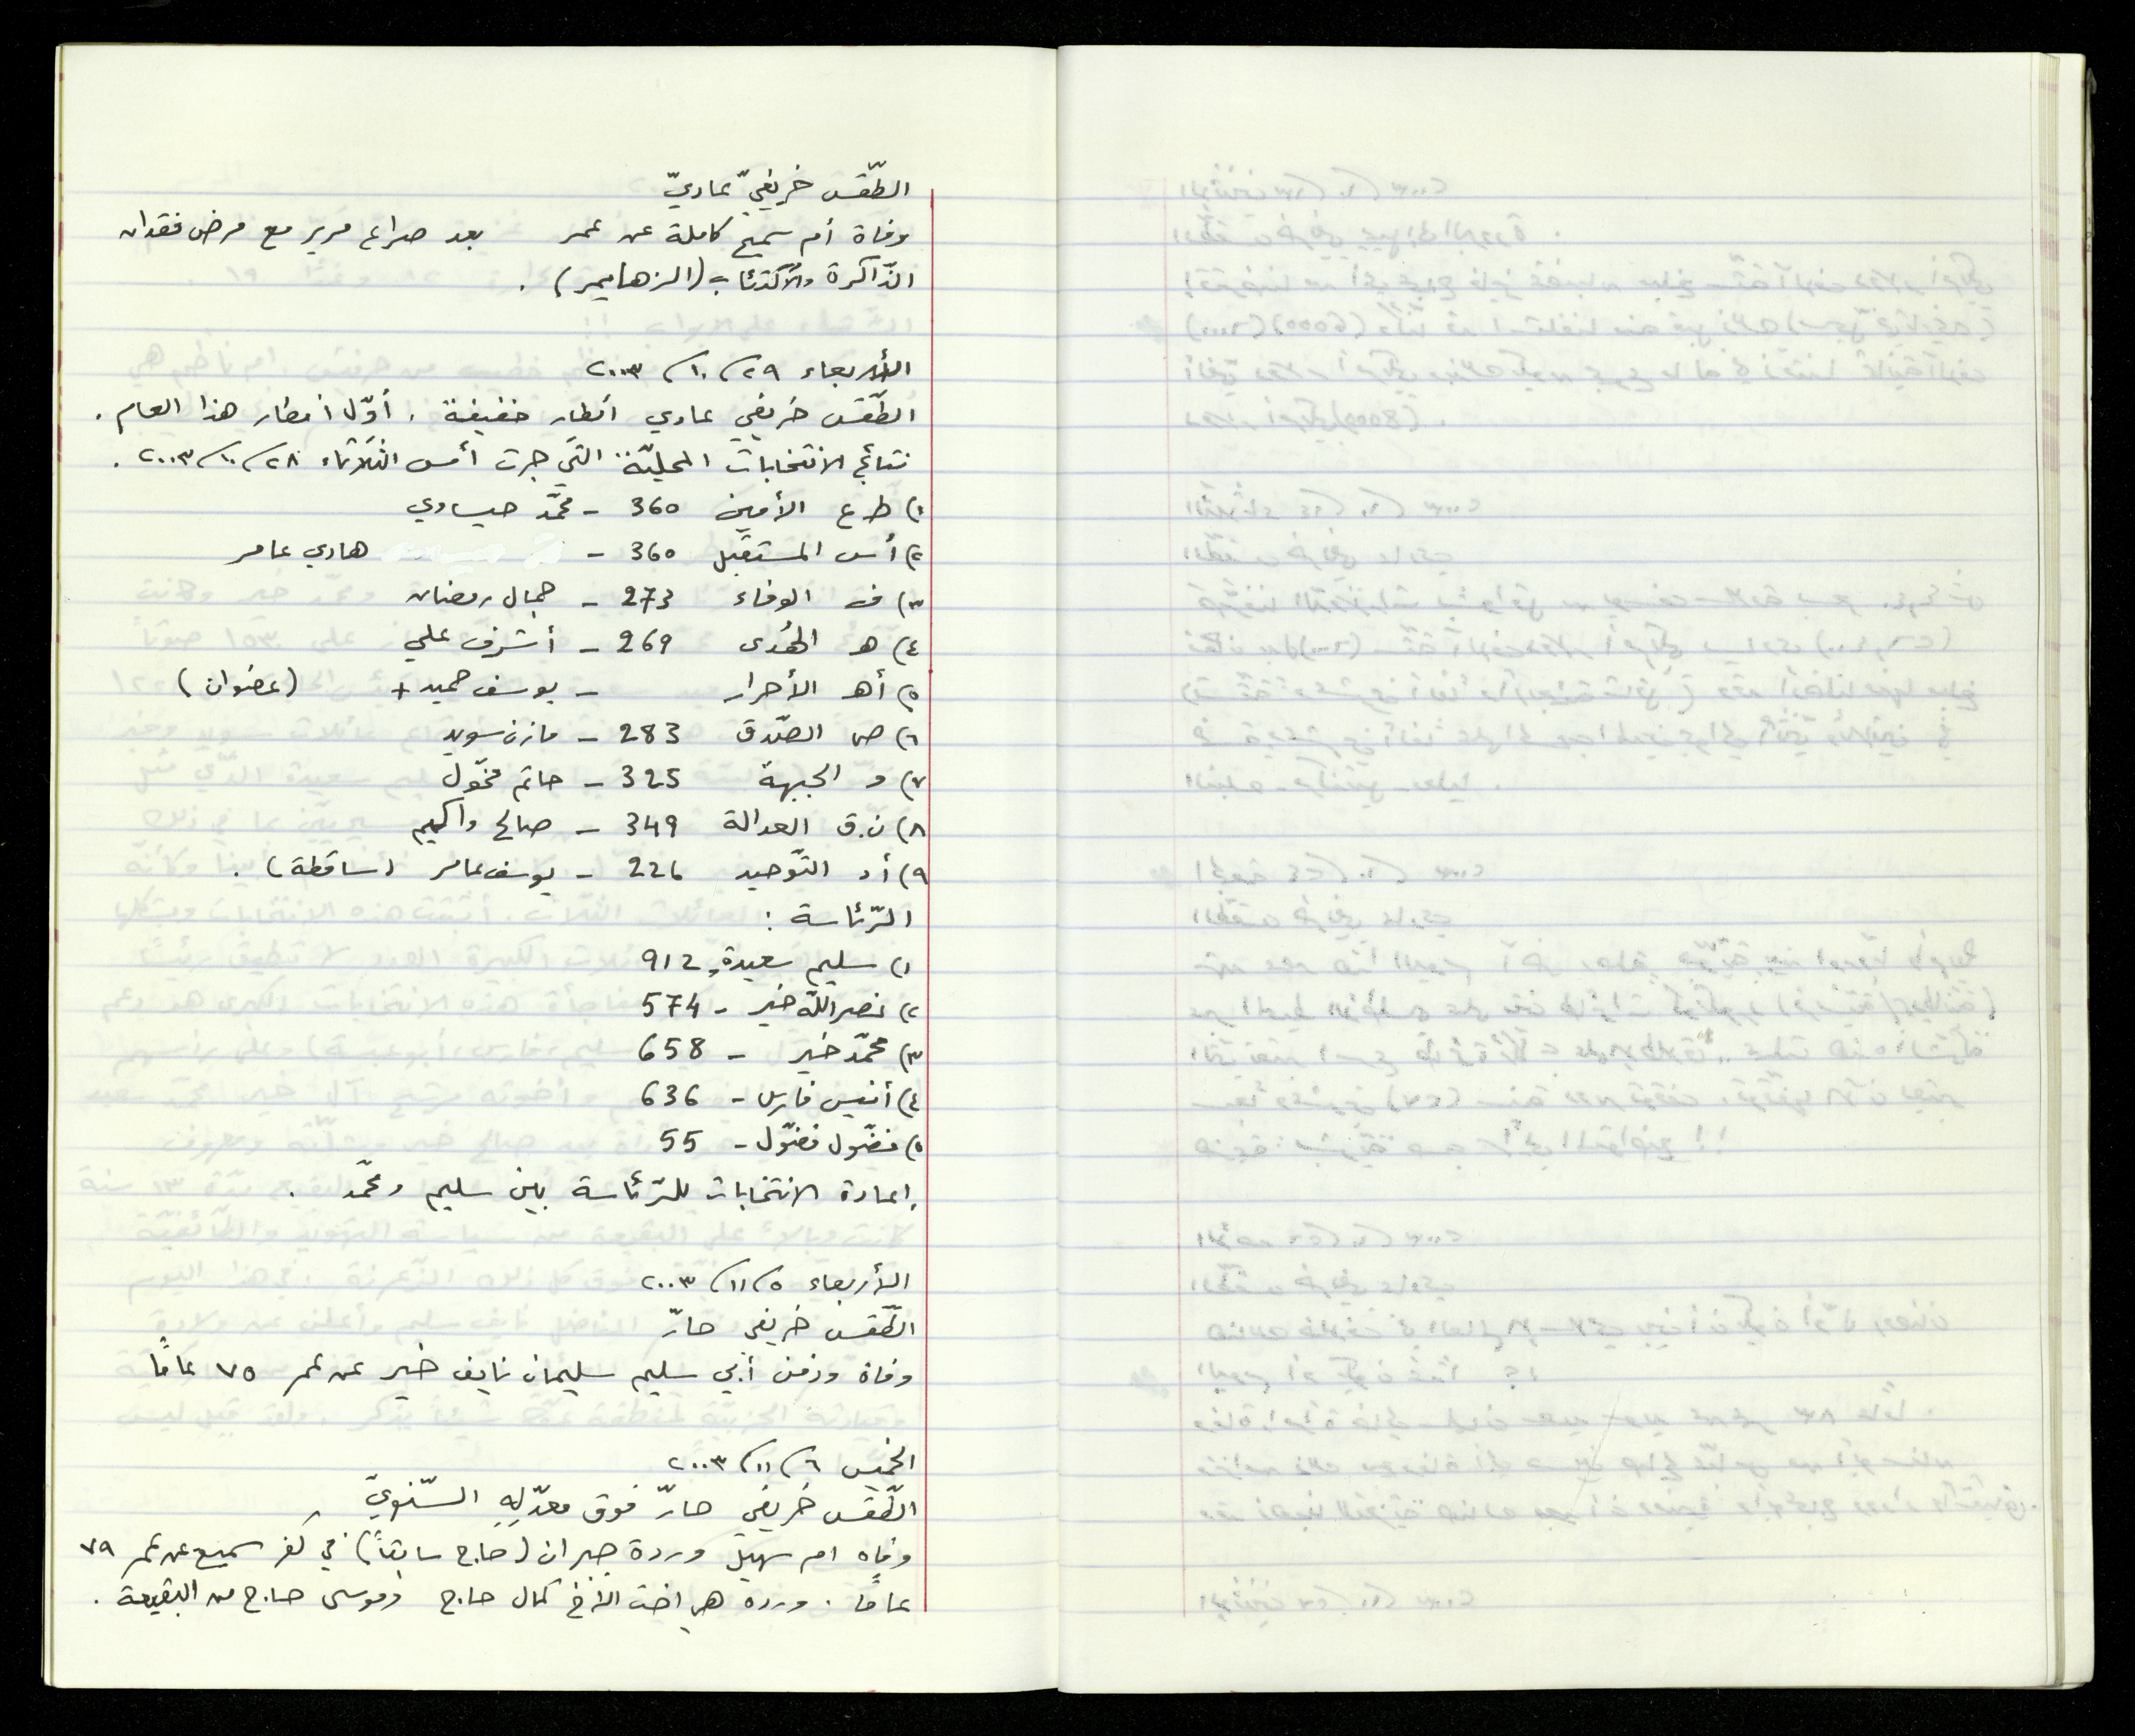 الطّقس خريفيّ عاديّ
وفاة أم سميح كاملة عن عمر بعد صراع مرير مع مرض فقدان
الذّاكرة والاكتئاب (الزهايمر).
الأربعاء ٢٩/١٠/٢٠٠٣
الطّقس خريفي عادي أمطار خفيفة. أوّل أمطار هذا العام.
نتائج الانتخابات المحليّة التي جرت أمس الثلاثاء ٢٨/١٠/٢٠٠٣.
١) ط ع الأمين 360 - محمّد حيساوي
٢) أس المستقبل 360 - هادي عامر
٣) ف الوفاء 273 - جمال رمضان
٤) هـ الهُدى 269 - أشرف علي
٥) أهـ الأحرار - يوسف حميد + (عضوان)
٦) ص الصّدق 283 - مازن سويد
٧) و الجبهة 325 - حاتم مخّول
٨) ن.ق العدالة 349 - صالح واكيم
٩) أد التّوحيد 226 - يوسف عامر (ساقطة).
الرّئاسة:
١) سليم سعيدة - 912
٢) نصرالله خير - 574
٣) محمّد خير - 658
٤) أنيس فارس - 636
٥) فضّول فضّول - 55
إعادة الانتخابات للرّئاسة بين سليم ومحمّد.
الأربعاء ٥/١١/٢٠٠٣
الطّقس خريفي حارّ
وفاة ودفن أبي سليم سليمان نايف خير عن عمر ٧٥ عامًا
الخميس ٦/١١/٢٠٠٣
الطّقس خريفي حارّ فوق معدّلِهِ السّنويّ
وفاه ام سهيل وردة جبران (حاج سابقاً) في كفر سميع عن عمر ٧٩
عامًا. ورده هي اخت الأخ كمال حاج وموسى حاج من البقيعة.